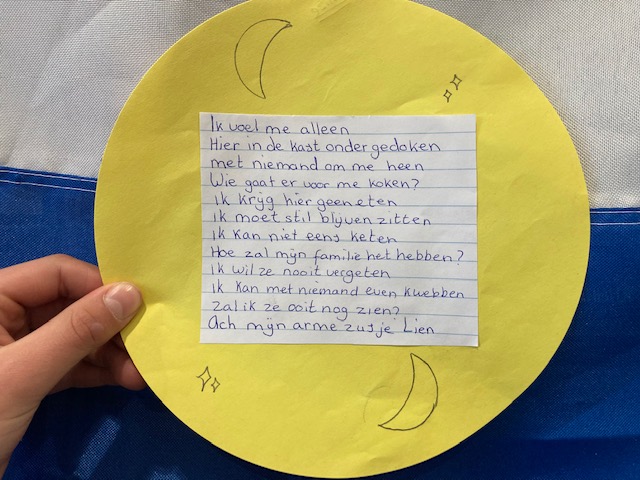 Ik voel me alleen
Hier in de kast ondergedoken
met niemand om me heen
Wie gaat er voor me koken?
Ik krijg hier geen eten
Ik moet stil blijven zitten
Ik kan niet eens keten
Hoe zal mijn familie het hebben?
Ik wil ze nooit vergeten
Ik kan met niemand even kwebben
Zal ik ze ooit nog zien?
Ach mijn arme zusje Lien